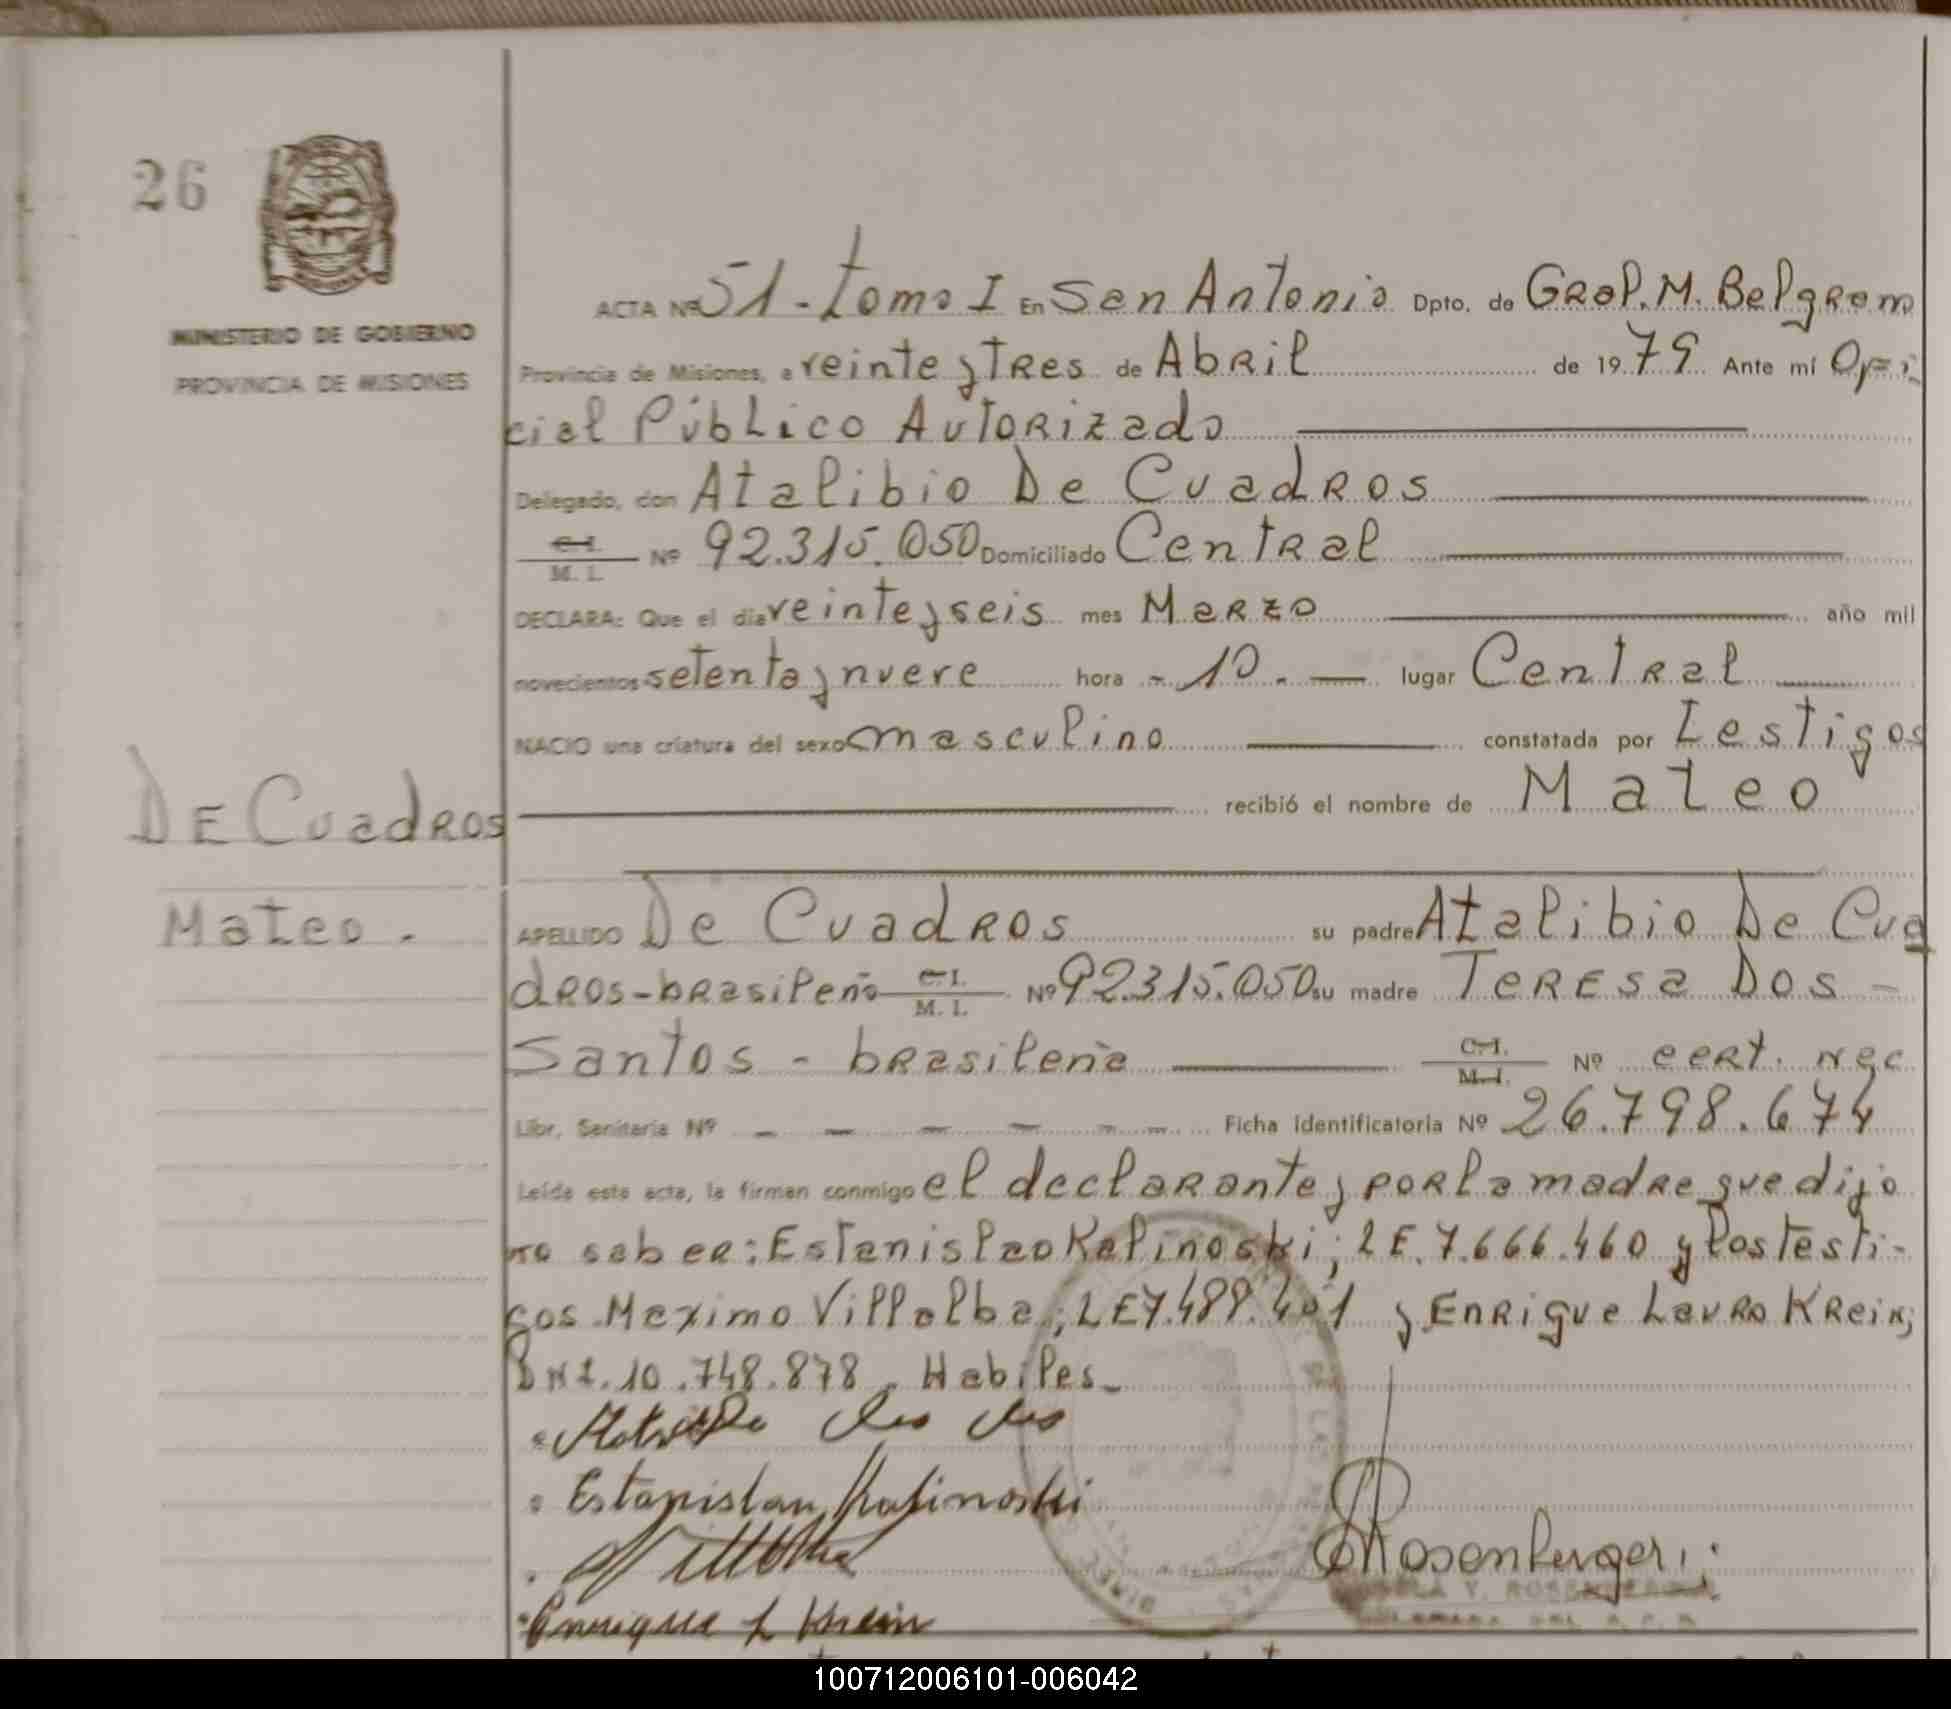 26
MINISTERIO DE GOBIERNO
PROVINCIA DE MISIONES
ACTA Nº 51 - Tomo I En San Antonio Dpto. de Gral. M. Belgrano
Provincia de Misiones, a veinte y Tres de Abril de 19 79 Ante mí Ofi
cial Público Autorizado
Delegado, don Atalibio De Cuadros
C.I. M. I. Nº 92.315.050 Domiciliado Central
DECLARA: Que el día veinte y seis mes Marzo año mil
novecientos setenta y nueve hora - 10. - lugar Central
NACIO una criatura del sexo masculino constatada por Testigos
recibió el nombre de Mateo
DE Cuadros
Mateo.
APELLIDO De Cuadros su padre Atalibio De Cua
dros - brasileño C.I. M. I. Nº 92.315.050 su madre Teresa Dos -
Santos - brasileña C.I. M.I. Nº cert. nac
Libr. Sanitaria Nº - - - - - - Ficha Identificatoria Nº 26.798.674
Leída esta acta, la firman conmigo el declarante y por la madre que dijo
no saber: Estanislao Kalinoski; LE. 7.666.460 y los testi-
gos Maximo Villalba; LE 7.489.401 y Enrique Lauro Krein;
DNI. 10.748.878. Habiles-
Estanislau Kalinoski
Villalba
Rosenberger
Enrique L Krein
100712006101-006042